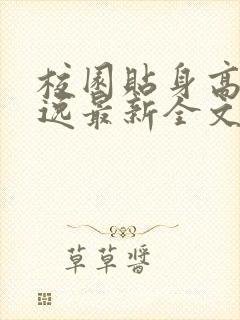 校園貼身高
逸最新全文
草草醬